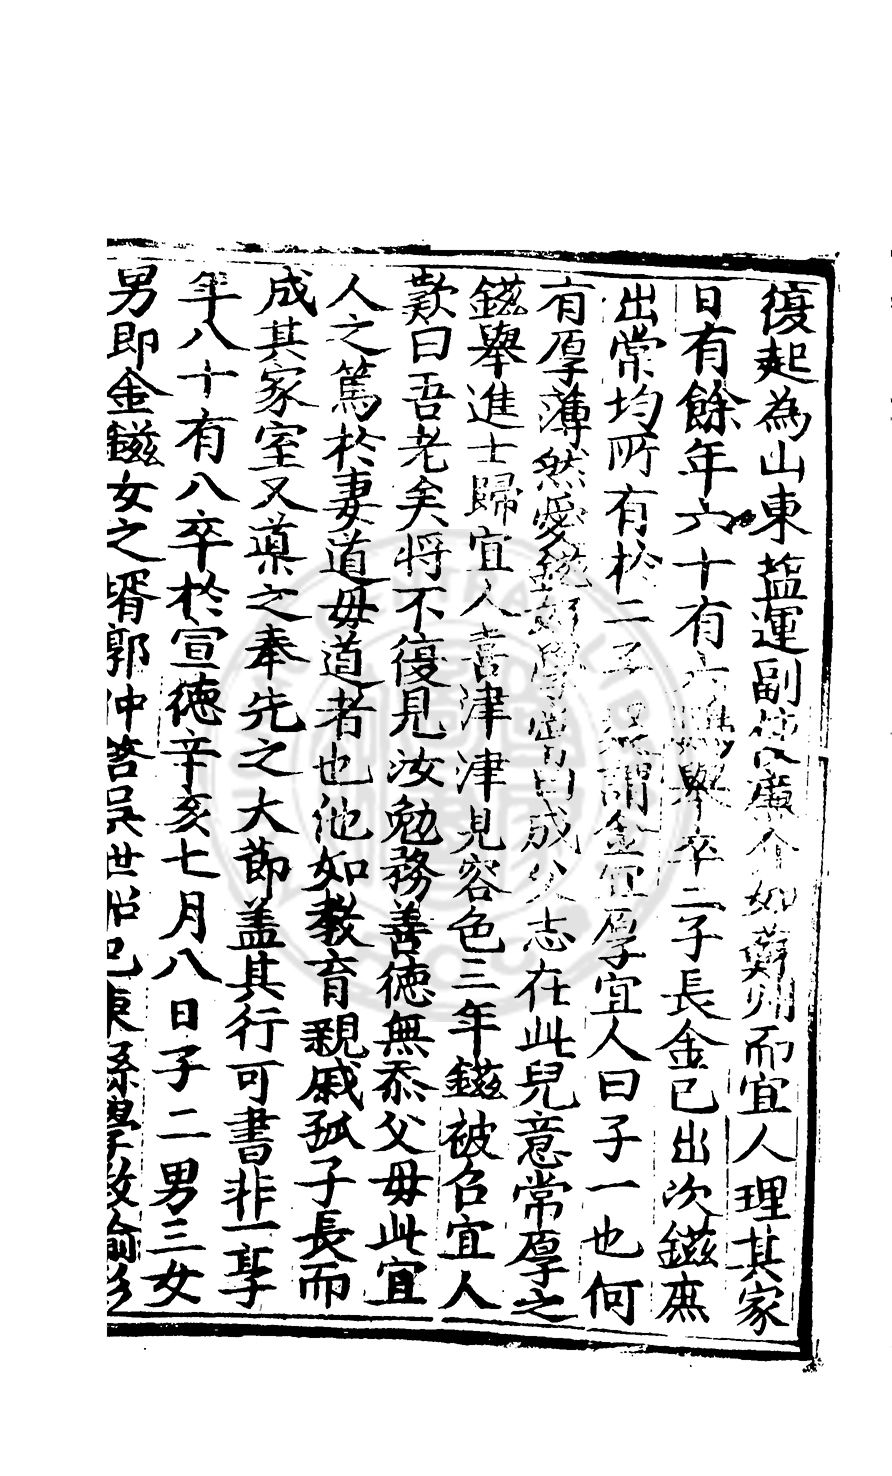 復起為山東塩運副使廉介如蘇州而宜人理其家
日有餘年六十有六舉卒二子長金已出次鎡庶
出常均所有於二子或謂金宜厚宜人曰子一也何
有厚薄然愛鎡好學常曰成父志在此兒意常厚之
鎡舉進士歸宜人喜津津見容色三年鎡被召宜人
歎曰吾老矣将不復見汝勉務善德無忝父母此宜
人之篤於妻道母道者也他如教育親戚孤子長而
成其家室又槀之奉先之大節盖其行可書非一事
年八十有八卒於宣德辛亥七月八日子二男三女
男即金鎡女之壻郭仲答吳世昭巴東縣學教諭彭